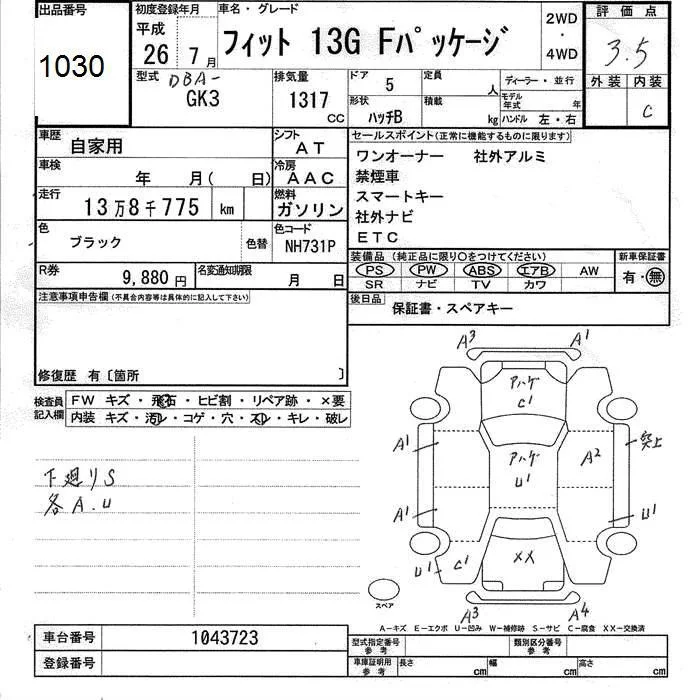 出品番号 初度登録年月 車名・グレード 2WD・4WD 評価点
1030 平成 26年 7月 フィット 13G Fパッケージ 3.5
型式 DBA- GK3 排気量 1317 CC ドア 5 定員 人 ディーラー・並行 外装 内装 C
形状 ハッチB 積載 kg モデル年式 年 ハンドル 左・右
車歴 自家用 シフト AT
車検 年 月( 日) 冷房 AAC
走行 13万8千775 km 燃料 ガソリン
色 ブラック 色替 色コード NH731P
R券 9,880円 名変通知期限 月 日
セールスポイント(正常に機能するものに限ります)
ワンオーナー 社外アルミ
禁煙車
スマートキー
社外ナビ
ETC
装備品 (純正品に限り○をつけてください) 新車保証書
PS PW ABS エアB AW 有・無
SR ナビ TV カワ
後日品 保証書・スペアキー
注意事項申告欄(不具合内容等は具体的に記入して下さい)
修復歴 有〔箇所 〕
検査員記入欄 FW キズ・飛石・ヒビ割・リペア跡・×要
内装 キズ・汚レ・コゲ・穴・スレ・キレ・破レ
下廻りS
各A.U
A3 A1
アハゲ
C1
A1 アハゲ A2 突上
U1
A1 U1
U1 C1 XX
スペア A3 A4
A-キズ E-エクボ U-凹み W-補修跡 S-サビ C-腐食 XX-交換済
車台番号 1043723
登録番号
型式指定番号 参考 類別区分番号 参考
車庫証明用 参考 長さ cm 幅 cm 高さ cm